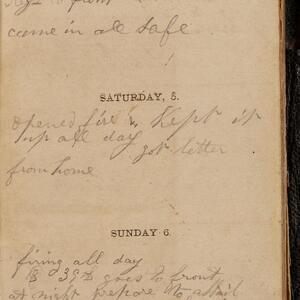 came in all safe
SATURDAY, 5.
opened fire & Kept it
up all day
got letter
from home
SUNDAY 6.
firing all day
goes to front
at night prepare to